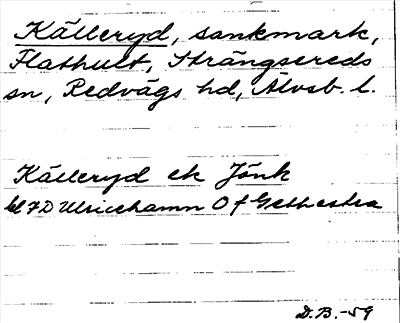 Källeryd, sankmark,
Flathult, Strängsereds
sn, Redvägs hd, Älvsb. l.
Källeryd ek Jönk
bl 7D Ulricehamn
D.B.-59